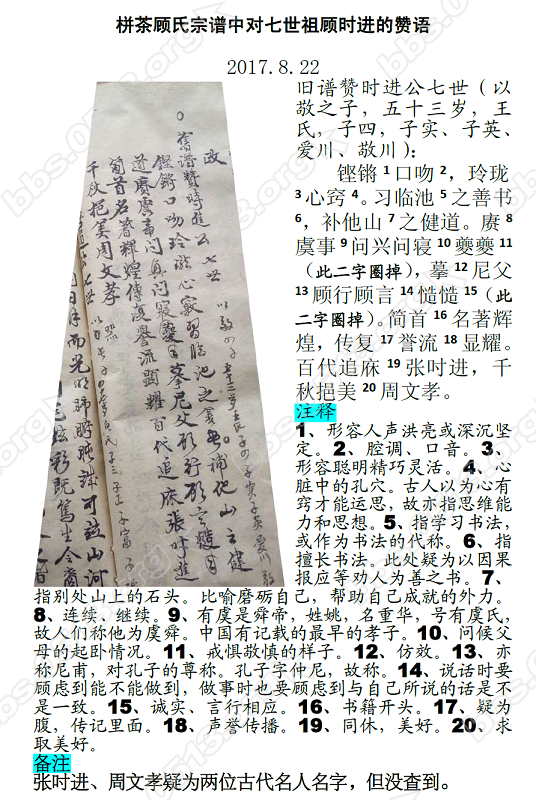 栟茶顾氏宗谱中对七世祖顾时进的赞语
2017.8.22
旧谱赞时进公七世（以
敬之子，五十三岁，王
氏，子四，子实、子英、
爱川、敬川）：
铿锵1口吻2，玲珑
3心窍4。习临池5之善书
6，补他山7之健道。赓8
虞事9问兴问寝10夔夔11
（此二字圈掉），摹12尼父
13顾行顾言14慥慥15（此
二字圈掉）。简首16名著辉
煌，传复17誉流18显耀。
百代追麻19张时进，千
秋挹美20周文孝。
舊譜贊時進公七世
铿锵口吻玲珑心竅習臨池之善书。補他山之健
简首名著輝煌傳復譽流顕耀百代追庥張时進
千秋挹美周文孝
注释
1、形容人声洪亮或深沉坚
定。2、腔调、口音。3、
形容聪明精巧灵活。4、心
脏中的孔穴。古人以为心有
窍才能运思，故亦指思维能
力和思想。5、指学习书法，
或作为书法的代称。6、指
擅长书法。此处疑为以因果
报应等劝人为善之书。7、
指别处山上的石头。比喻磨砺自己，帮助自己成就的外力。
8、连续、继续。9、有虞是舜帝，姓姚，名重华，号有虞氏，
故人们称他为虞舜。中国有记载的最早的孝子。10、问候父
母的起卧情况。11、戒惧敬慎的样子。12、仿效。13、亦
称尼甫，对孔子的尊称。孔子字仲尼，故称。14、说话时要
顾虑到能不能做到，做事时也要顾虑到与自己所说的话是不
是一致。15、诚实、言行相应。16、书籍开头。17、疑为
腹，传记里面。18、声誉传播。19、同休，美好。20、求
取美好。
备注
张时进、周文孝疑为两位古代名人名字，但没查到。
bbs.0513.org